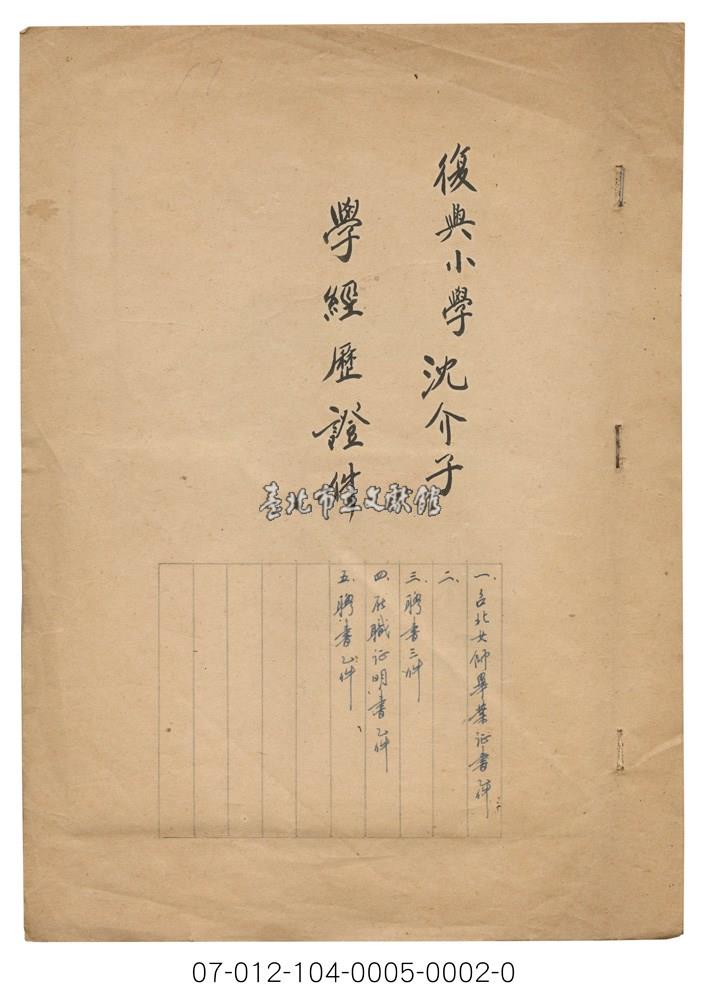 復興小學沈介子
學經歷證件
臺北市立文獻館
一、台北女师畢業证書件
二、
三、聘書三件
四、在職证明書乙件
五、聘書乙件
07-012-104-0005-0002-0